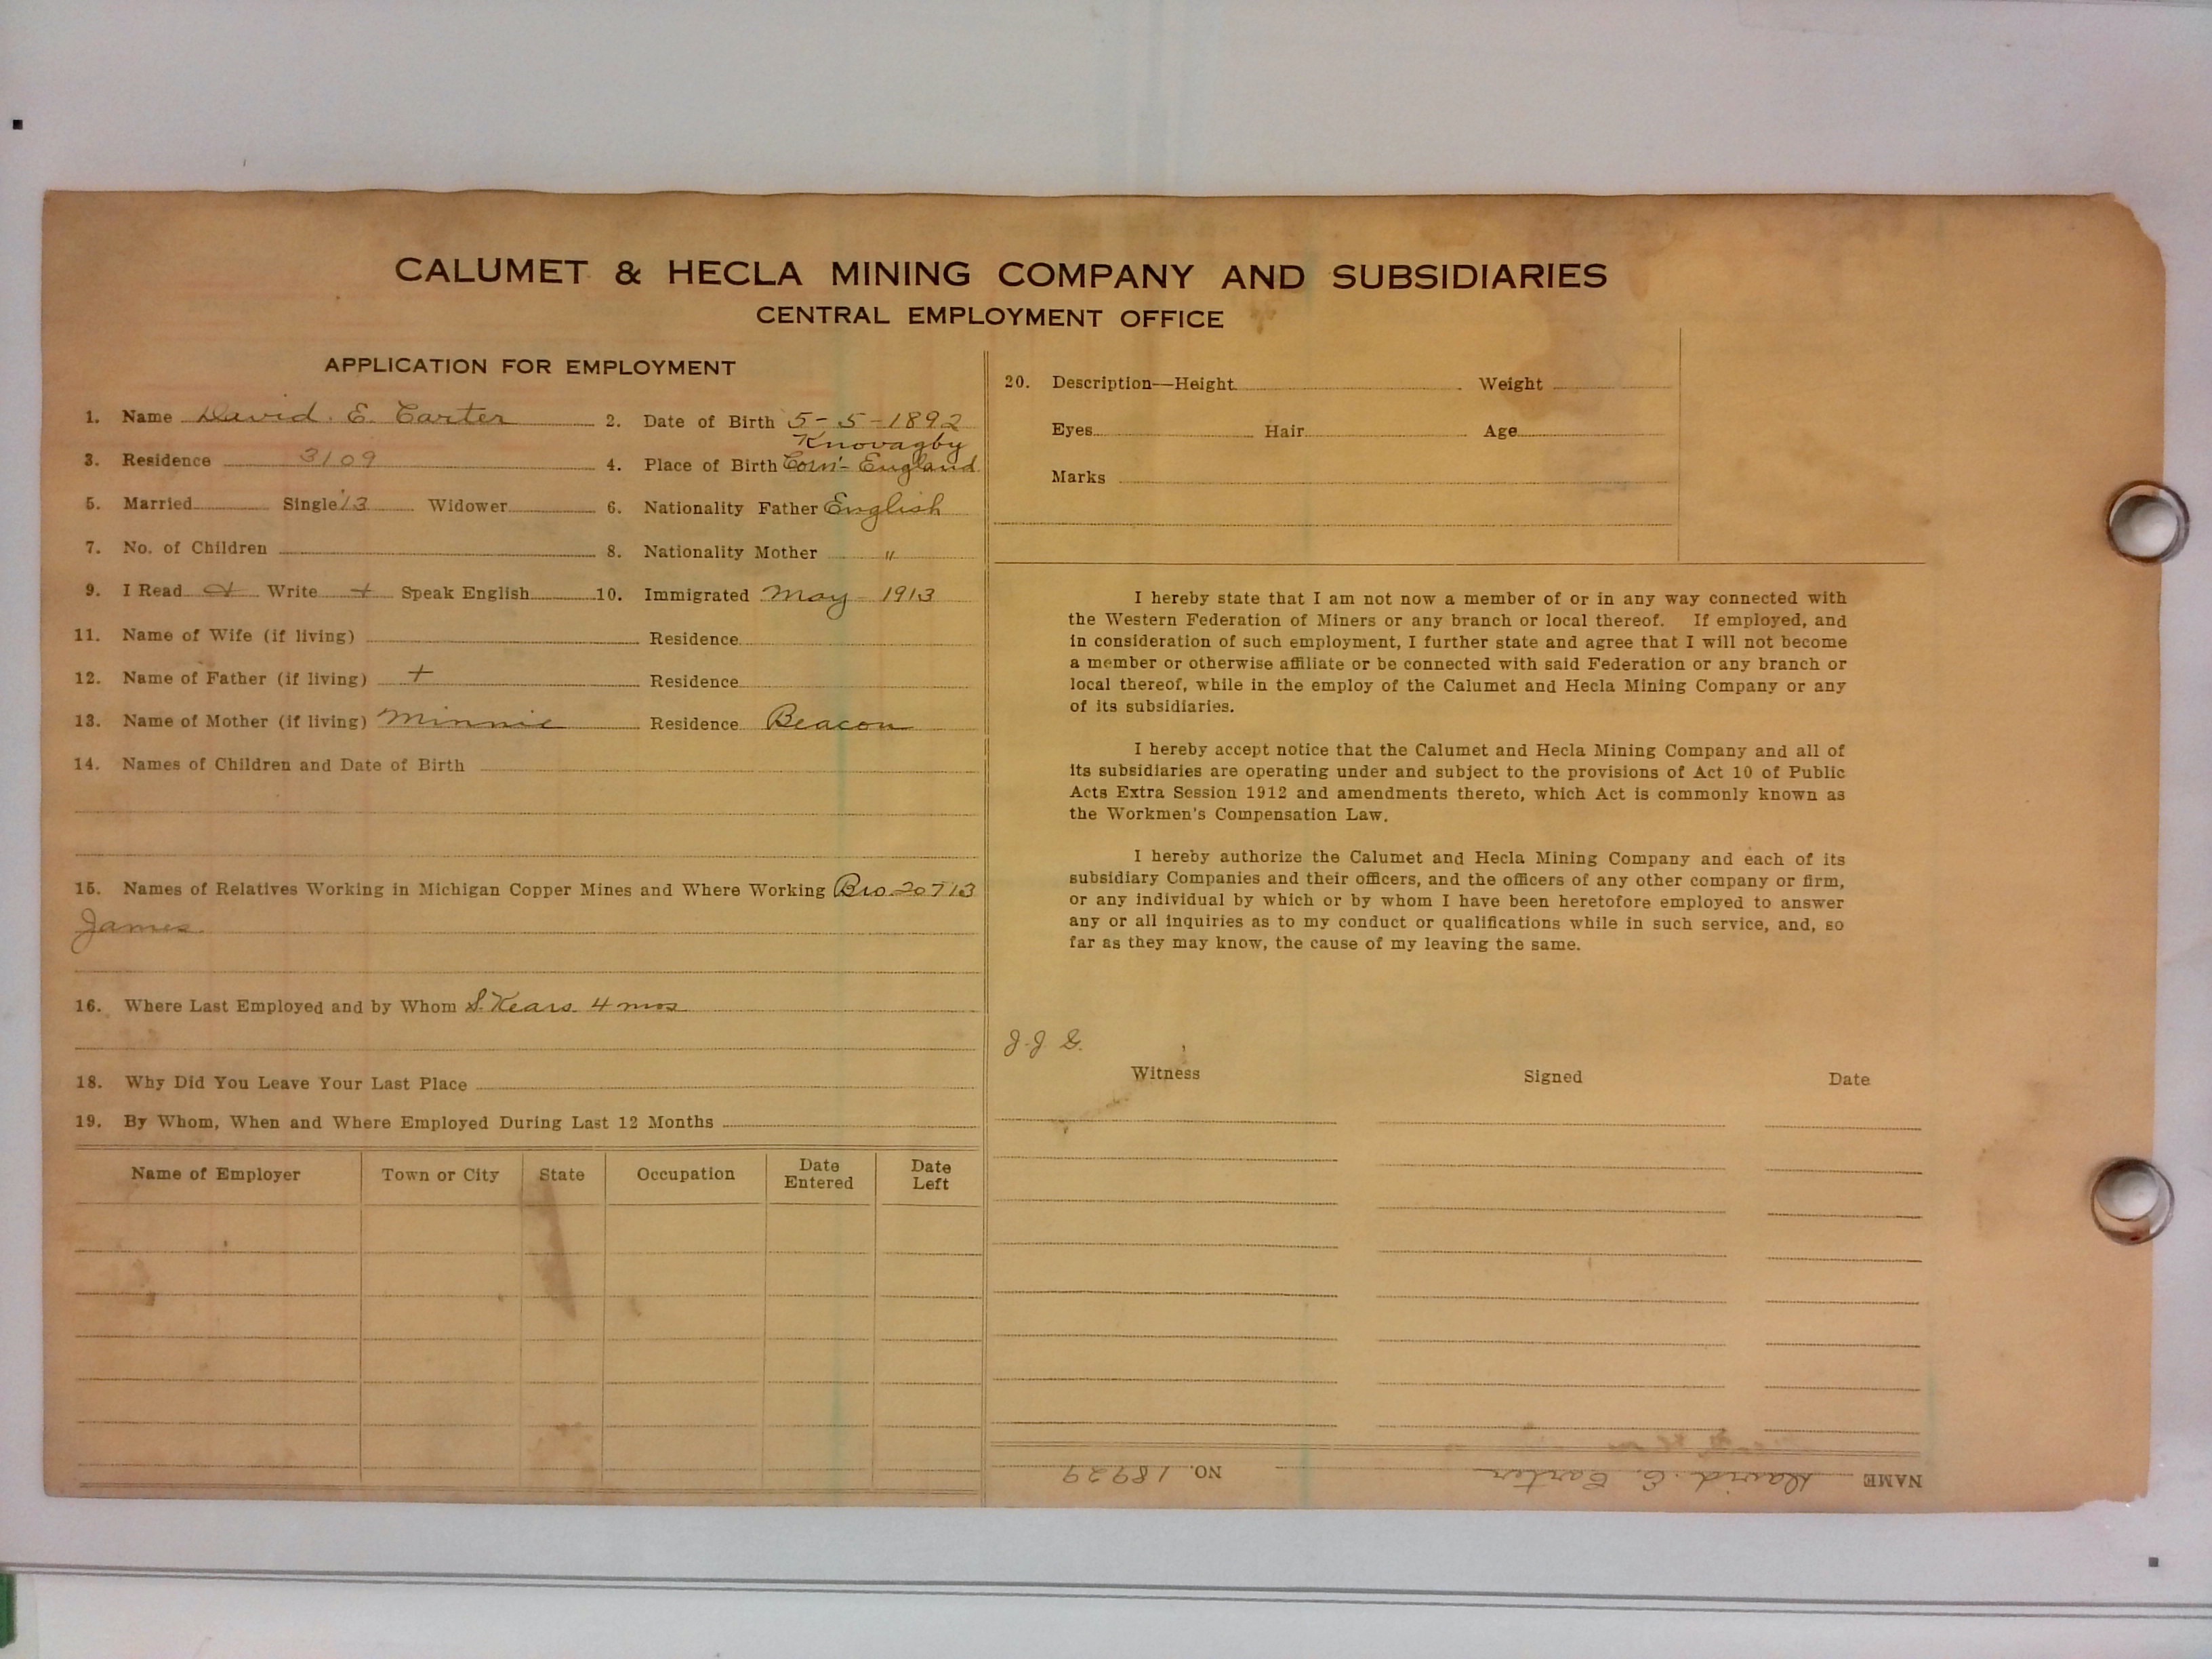 CALUMET & HECLA MINING COMPANY AND SUBSIDIARIES
CENTRAL EMPLOYMENT OFFICE
APPLICATION FOR EMPLOYMENT
1. Name David. E. Carter 2. Date of Birth 5-5-1892
Knovagby
3. Residence 3109 4. Place of Birth Corn'- England
5. Married Single '13 Widower 6. Nationality Father English
7. No. of Children 8. Nationality Mother "
9. I Read + Write + Speak English 10. Immigrated May 1913
11. Name of Wife (if living) Residence
12. Name of Father (if living) + Residence
13. Name of Mother (if living) Minnie Residence Beacon
14. Names of Children and Date of Birth
15. Names of Relatives Working in Michigan Copper Mines and Where Working Bro. 20713
James
16. Where Last Employed and by Whom S. Kears. 4 mos
18. Why Did You Leave Your Last Place
19. By Whom, When and Where Employed During Last 12 Months
Name of Employer Town or City State Occupation Date Entered Date Left
20. Description—Height Weight
Eyes Hair Age
Marks
I hereby state that I am not now a member of or in any way connected with
the Western Federation of Miners or any branch or local thereof. If employed, and
in consideration of such employment, I further state and agree that I will not become
a member or otherwise affiliate or be connected with said Federation or any branch or
local thereof, while in the employ of the Calumet and Hecla Mining Company or any
of its subsidiaries.
I hereby accept notice that the Calumet and Hecla Mining Company and all of
its subsidiaries are operating under and subject to the provisions of Act 10 of Public
Acts Extra Session 1912 and amendments thereto, which Act is commonly known as
the Workmen's Compensation Law.
I hereby authorize the Calumet and Hecla Mining Company and each of its
subsidiary Companies and their officers, and the officers of any other company or firm,
or any individual by which or by whom I have been heretofore employed to answer
any or all inquiries as to my conduct or qualifications while in such service, and, so
far as they may know, the cause of my leaving the same.
J. J. G.
Witness Signed Date
NAME David. E. Carter NO. 18929